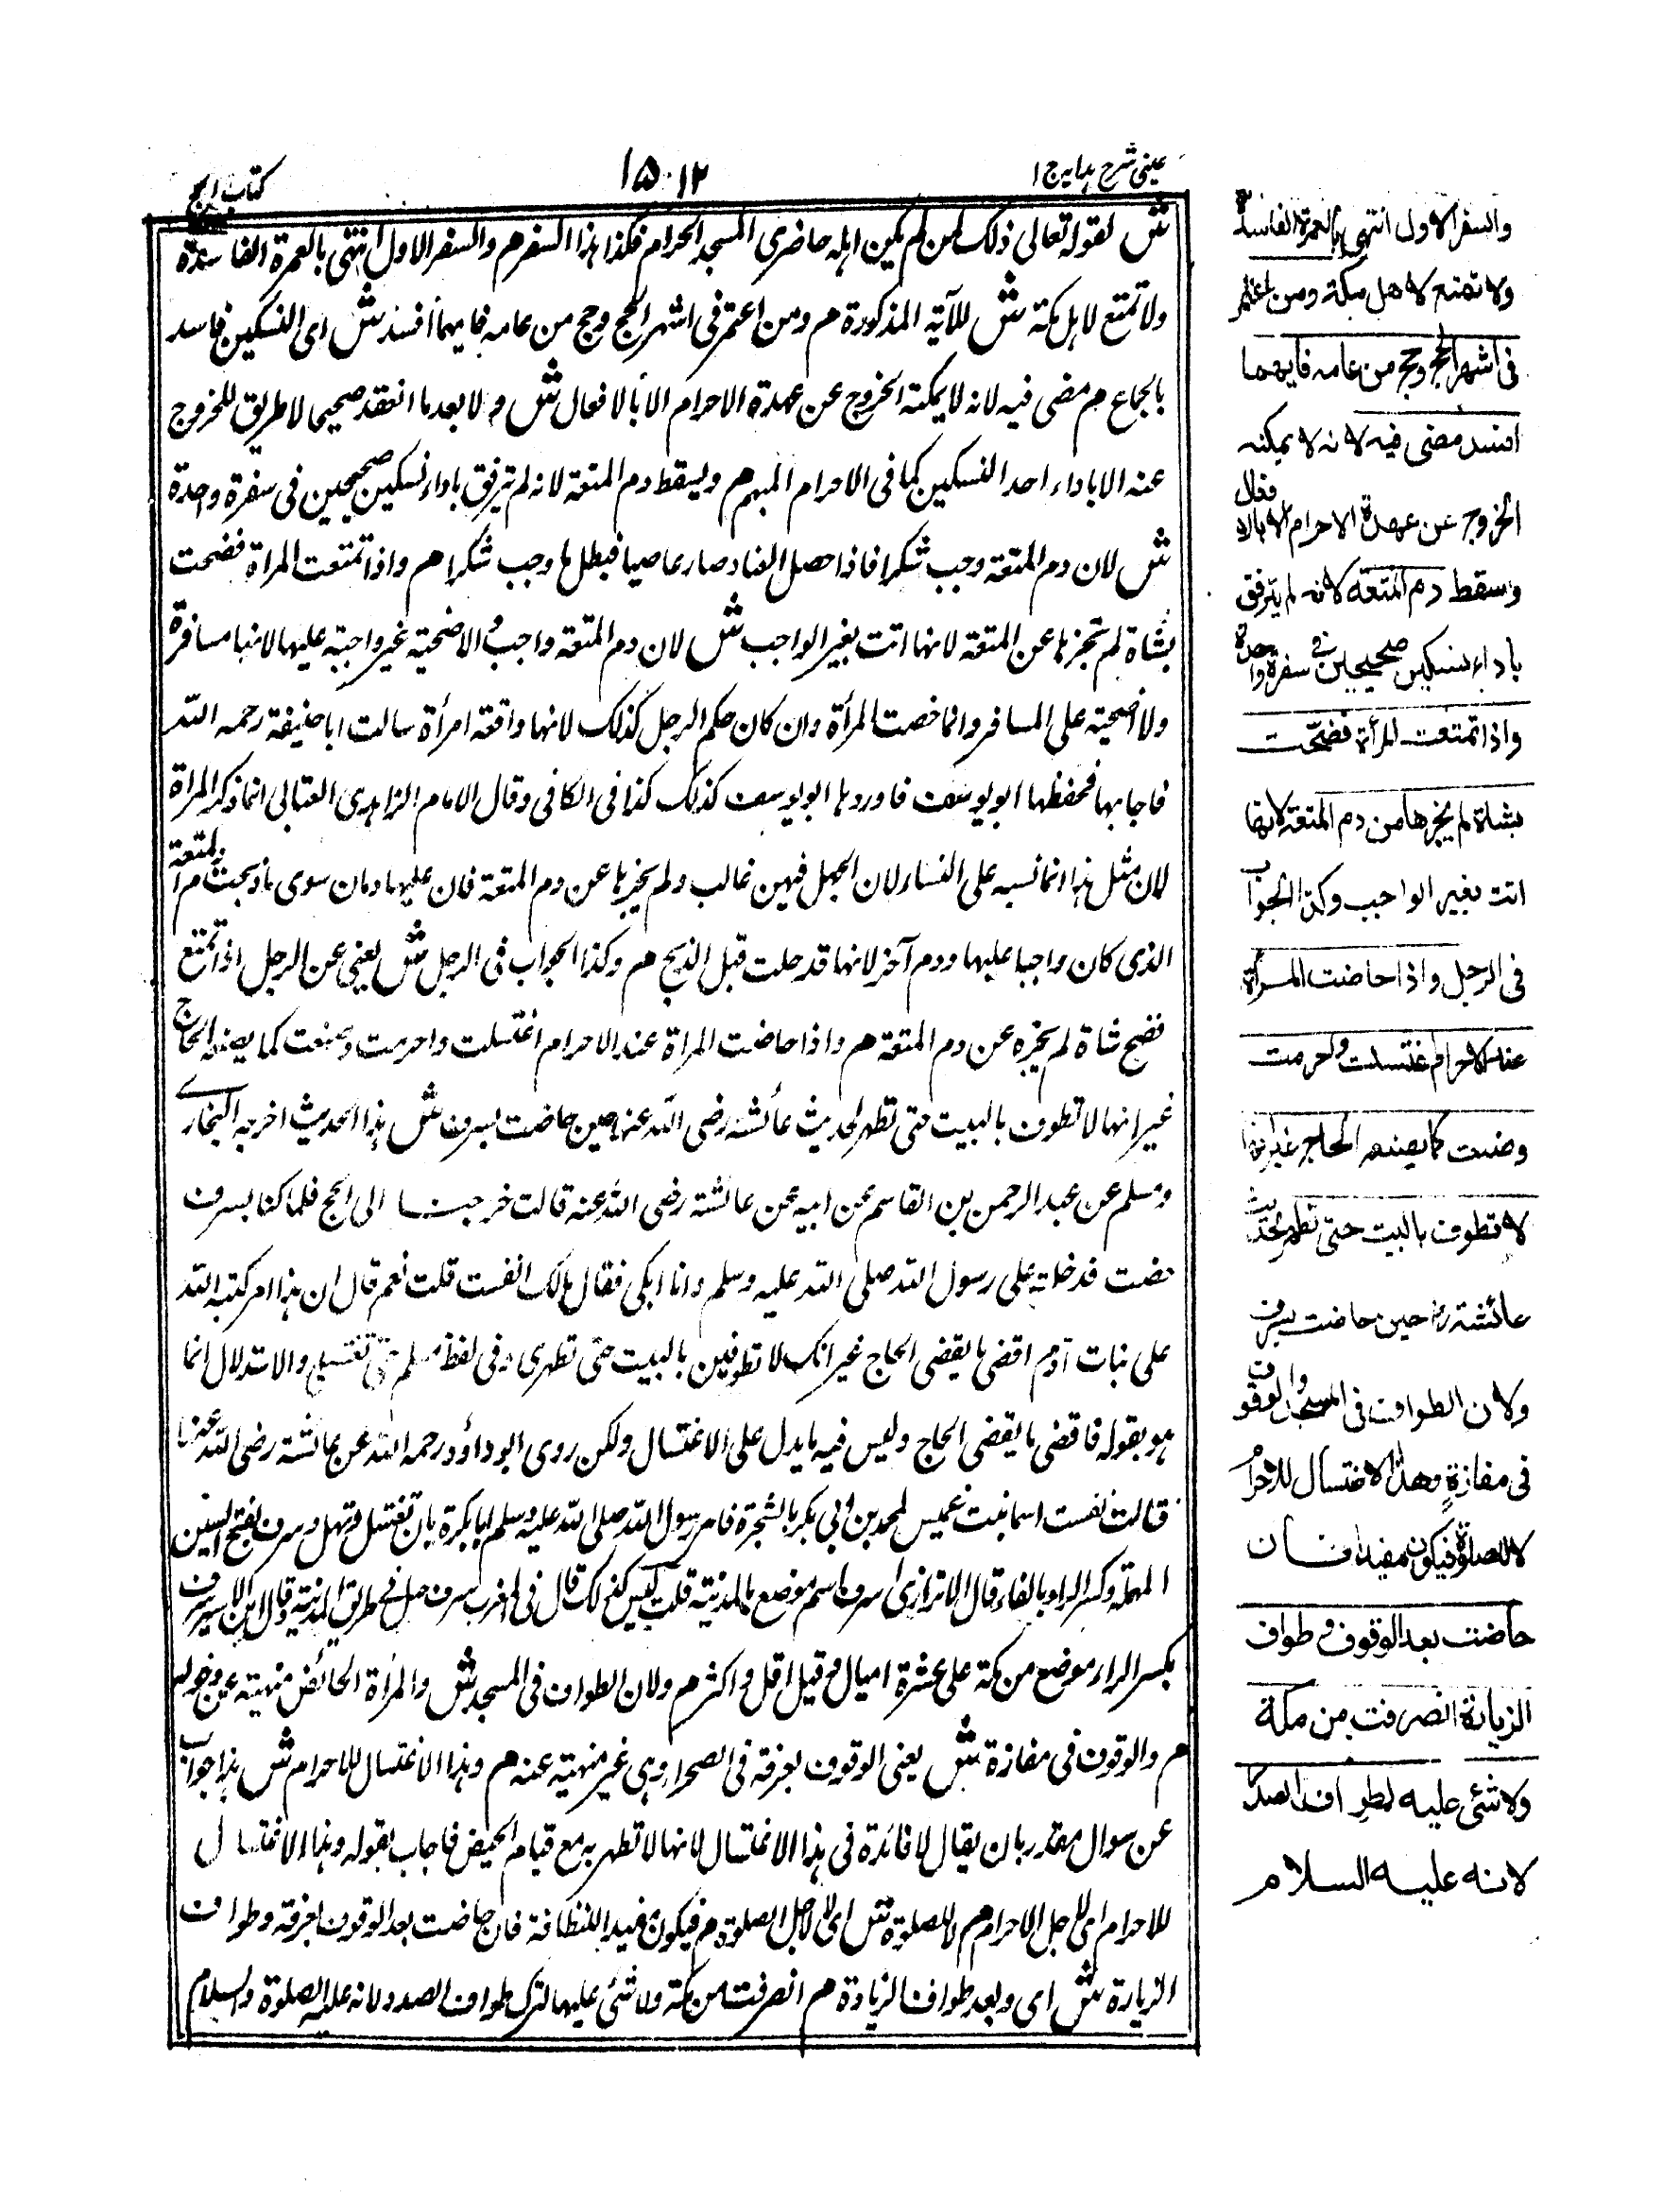 عینی شرح ہدایہ ج ١
١٥٠١٢
كتاب الحج
ش لقوله تعالى ذلك لمن لم يكن اهله حاضرى المسجد الحرام فكذا هذا السفر م والسفر الاول انتهى بالعمرة الفاسدة
ولا تمتع لاهل مكة ش للآية المذكورة م ومن اعتمر فى اشهر الحج وحج من عامه فايهما أفسد ش اى النسكين فاسد
بالجماع م مضى فيه لانه لا يمكنه الخروج عن عهدة الاحرام الا بالافعال ش و لا بعد ما انعقد صحيحا لا طريق للخروج
عنه الا باداء احد النسكين كما فى الاحرام المبهم م ويسقط دم المتعة لانه لم يترفق باداء نسكين صحيحين فى سفرة واحدة
ش لان دم المتعة وجب شكرا فاذا حصل الفساد صار عاصيا فبطل ما وجب شكرا م واذا تمتعت المراة فضحت
بشاة لم تجزها عن المتعة لانها اتت بغير الواجب ش لان دم المتعة واجب و الاضحية غير واجبة عليها لانها مسافرة
ولا اضحية على المسافر وانما خصت المرأة وان كان حكم الرجل كذلك لانها واقعة امرأة سالت ابا حنيفة رحمه الله
فاجابها فحفظها ابو يوسف فاوردها ابو يوسف كذلك كذا فى الكافى وقال الامام الزاهدى العتابى انما ذكر المراة
لان مثل هذا انما تسبه على النساء لان الجهل فيهن غالب ولم يجزها عن دم المتعة فان عليها دمان سوى ما ذبحت دم المتعة
الذى كان واجبا عليها ودم آخر لانها قد حلت قبل الذبح م وكذا الجواب فى الرجل ش يعنى عن الرجل اذا تمتع
فضح شاة لم يجزه عن دم المتعة م واذا حاضت المراة عند الاحرام اغتسلت واحرمت وصنعت كما يصنعه الحاج
غير انها لا تطوف بالبيت حتى تطهر لحديث عائشة رضى الله عنها حين حاضت بسرف ش هذا الحديث اخرجه البخارى
ومسلم عن عبد الرحمن بن القاسم عن ابيه عن عائشة رضى الله عنه قالت خرجنا الى الحج فلما كنا بسرف
حضت فدخل على رسول الله صلى الله عليه وسلم وانا ابكى فقال مالك انفست قلت نعم قال ان هذا امر كتبه الله
على بنات آدم اقضى ما يقضى الحاج غير انك لا تطوفين بالبيت حتى تطهرى وفى لفظ مسلم حتى تغتسلى والاستدلال انما
هو بقوله فاقضى ما يقضى الحاج وليس فيه ما يدل على الاغتسال ولكن روى ابو داؤد رحمه الله عن عائشة رضى الله عنها
قالت نفست اسماء بنت عميس لمحمد بن ابى بكر بالشجرة فامر رسول الله صلى الله عليه وسلم ابا بكرة بان تغتسل وتهل وسرف بفتح السين
المهملة وكسر الراء بالفاء قال الاترازى سرف اسم موضع بالمدينة قلت ليس كذلك قال فى المغرب سرف جبل فى طريق المدينة وقال ابن الاثير سرف
بكسر الراء موضع من مكة على عشرة اميال وقيل اقل و اكثر م ولان الطواف فى المسجد ش والمرأة الحائض منهية عن دخوله
م والوقوف فى مفازة ش يعنى الوقوف بعرفة فى الصحراء وهى غير منهية عنه م وهذا الاغتسال للاحرام ش هذا جواب
عن سوال مقدر بان يقال لا فائدة فى هذا الاغتسال لانها لا تطهر به مع قيام الحيض فاجاب بقوله وهذا الاغتسال
للاحرام اى لاجل الاحرام م لا للصلوة ش اى لا لاجل الصلوة م فيكون مفيدا للنظافة فان حاضت بعد الوقوف بعرفة وطواف
الزيارة ش اى وبعد طواف الزيادة م انصرفت من مكة ولا شئى عليها لترك طواف الصدر لانه عليه الصلوة والسلام
والسفر الاول انتهى بالعمرة الفاسدة
ولا تمتع لاهل مكة ومن اعتمر
فى اشهر الحج وحج من عامه فايهما
افسد مضى فيه لانه لا يمكنه
الخروج عن عهدة الاحرام الا بالافعال
وسقط دم المتعة لانه لم يترفق
باداء نسكين صحيحين فى سفرة واحدة
واذا تمتعت المرأة فضحت
بشاة لم يجزها من دم المتعة لانها
اتت بغير الواجب وكذا الجواب
فى الرجل واذا حاضت المرأة
عند الاحرام اغتسلت واحرمت
وصنعت كما يصنعه الحاج غير انها
لا تطوف بالبيت حتى تطهر لحديث
عائشة رض حين حاضت بسرف
ولان الطواف فى المسجد والوقوف
فى مفازة وهذا الاغتسال للاحرام
لا للصلوة فيكون مفيدا فان
حاضت بعد الوقوف و طواف
الزيارة انصرفت من مكة
ولا شئى عليه لطواف الصدر
لانه عليه السلام